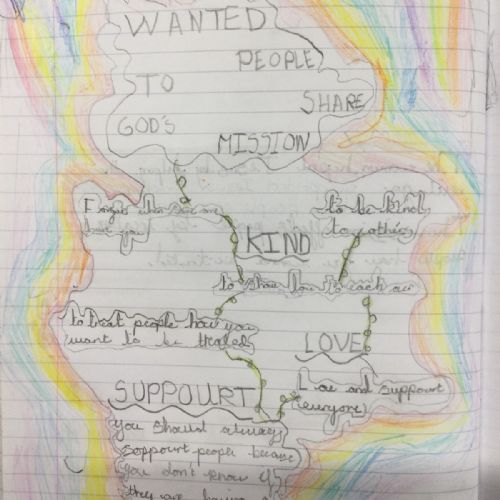 WANTED
PEOPLE
TO
SHARE
GOD'S
MISSION
when
you
to be kind
to others
KIND
to show love to each
to treat people how you
want to be treated
LOVE
SUPPOURT
Love and suppourt
(everyone)
You should always
soppourt people because
you don't know if
they are having a